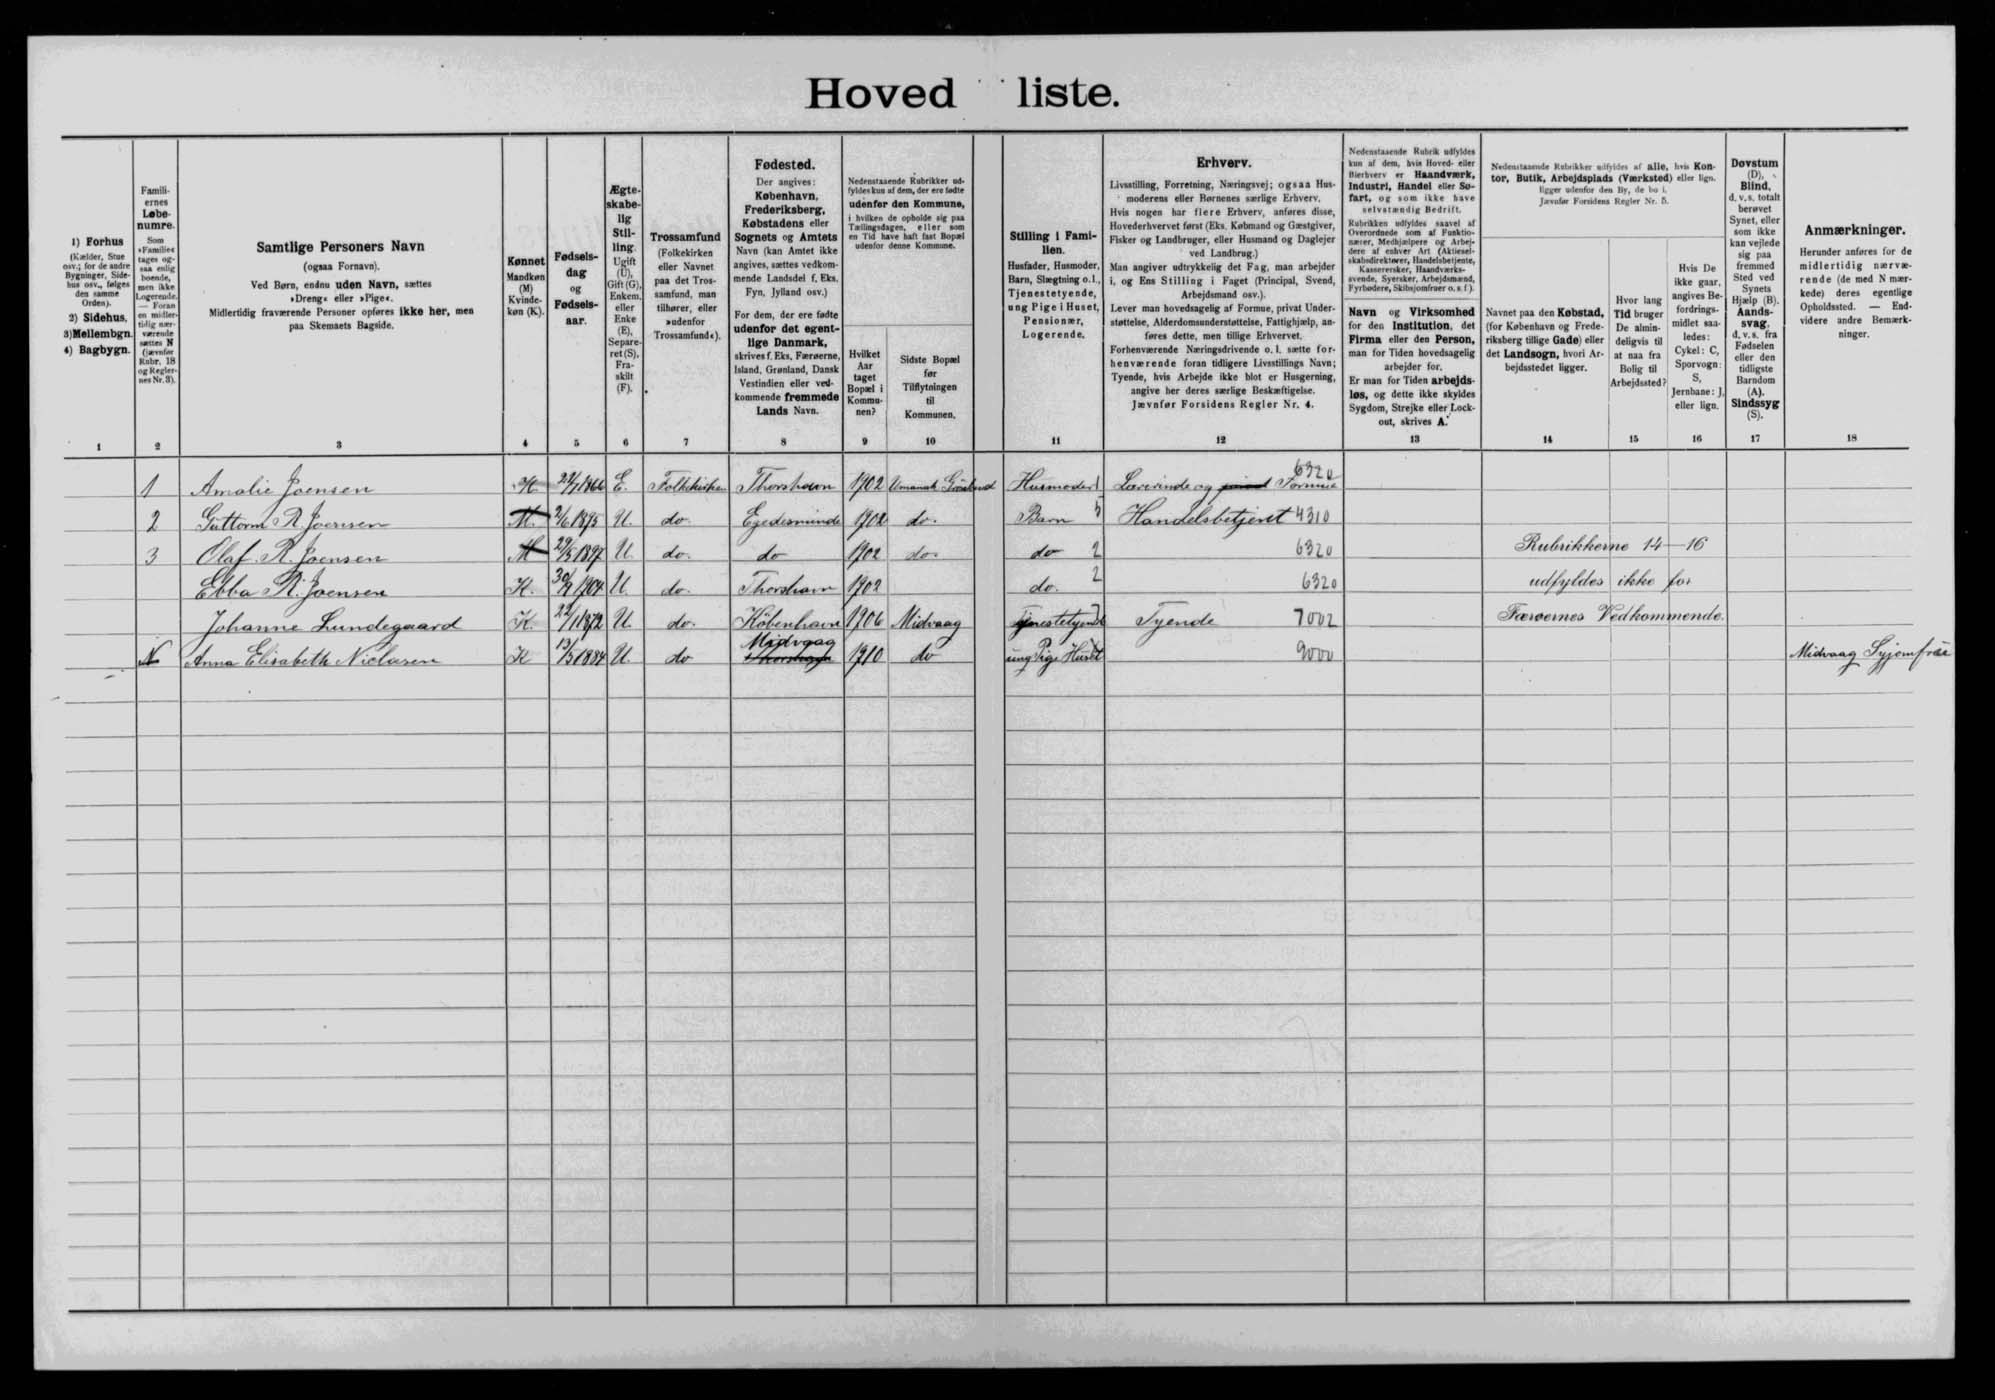 Hoved liste.
1) Forhus
(Kælder, Stue
osv.; for de andre
Bygninger, Side-
hus osv., følges
den samme
Orden).
2) Sidehus,
3) Mellembgn.
4) Bagbygn.
1
Famili-
ernes
Løbe-
numre.
Som
»Familie«
tages og-
saa enlig
boende,
men ikke
Logerende.
— Foran
en midler-
tidig nær-
værende
sættes N
(jævnfør
Rubr. 18
og Regler-
nes Nr. 3).
2
Samtlige Personers Navn
(ogsaa Fornavn).
Ved Børn, endnu uden Navn, sættes
»Dreng« eller »Pige«.
Midlertidig fraværende Personer opføres ikke her, men
paa Skemaets Bagside.
3
Kønnet
Mandkøn
(M)
Kvinde-
køn (K).
4
Fødsels-
dag
og
Fødsels-
aar.
5
Ægte-
skabe-
lig
Stil-
ling.
Ugift
(U),
Gift (G),
Enkem.
eller
Enke
(E),
Separe-
ret (S),
Fra-
skilt
(F).
6
Trossamfund
(Folkekirken
eller Navnet
paa det Tros-
samfund, man
tilhører, eller
»udenfor
Trossamfund«).
7
Fødested.
Der angives:
København,
Frederiksberg,
Købstadens eller
Sognets og Amtets
Navn (kan Amtet ikke
angives, sættes vedkom-
mende Landsdel f. Eks.
Fyn, Jylland osv.)
For dem, der ere fødte
udenfor det egent-
lige Danmark,
skrives f. Eks. Færøerne,
Island, Grønland, Dansk
Vestindien eller ved-
kommende fremmede
Lands Navn.
8
Nedenstaaende Rubrikker ud-
fyldes kun af dem, der ere fødte
udenfor den Kommune,
i hvilken de opholde sig paa
Tællingsdagen, eller som
en Tid have haft fast Bopæl
udenfor denne Kommune.
Hvilket
Aar
taget
Bopæl i
Kommu-
nen?
9
Sidste Bopæl
før
Tilflytningen
til
Kommunen.
10
Stilling i Fami-
lien.
Husfader, Husmoder,
Barn, Slægtning o.l.,
Tjenestetyende,
ung Pige i Huset,
Pensionær,
Logerende.
11
Erhverv.
Livsstilling, Forretning, Næringsvej; ogsaa Hus-
moderens eller Børnenes særlige Erhverv.
Hvis nogen har flere Erhverv, anføres disse,
Hovederhvervet først (Eks. Købmand og Gæstgiver,
Fisker og Landbruger, eller Husmand og Daglejer
ved Landbrug.)
Man angiver udtrykkelig det Fag, man arbejder
i, og Ens Stilling i Faget (Principal, Svend,
Arbejdsmand osv.).
Lever man hovedsagelig af Formue, privat Under-
støttelse, Alderdomsunderstøttelse, Fattighjælp, an-
føres dette, men tillige Erhvervet.
Forhenværende Næringsdrivende o. l. sætte for-
henværende foran tidligere Livsstillings Navn;
Tyende, hvis Arbejde ikke blot er Husgerning,
angive her deres særlige Beskæftigelse.
Jævnfør Forsidens Regler Nr. 4.
12
Nedenstaaende Rubrik udfyldes
kun af dem, hvis Hoved- eller
Bierhverv er Haandværk,
Industri, Handel eller Sø-
fart, og som ikke have
selvstændig Bedrift.
Rubrikken udfyldes saavel af
Overordnede som af Funktio-
nærer, Medhjælpere og Arbej-
dere af enhver Art (Aktiesel-
skabsdirektører, Handelsbetjente,
Kassererskær, Haandværks-
svende, Syersker, Arbejdsmænd,
Fyrbødere, Skibsjomfruer o. s. f.).
Navn og Virksomhed
for den Institution, det
Firma eller den Person,
man for Tiden hovedsagelig
arbejder for.
Er man for Tiden arbejds-
løs, og dette ikke skyldes
Sygdom, Strejke eller Lock-
out, skrives A.
13
Nedenstaaende Rubrikker udfyldes af alle, hvis Kon-
tor, Butik, Arbejdsplads (Værksted) eller lign.
ligger udenfor den By, de bo i.
Jævnfør Forsidens Regler Nr. 5.
Navnet paa den Købstad,
(for København og Frede-
riksberg tillige Gade) eller
det Landsogn, hvori Ar-
bejdsstedet ligger.
14
Hvor lang
Tid bruger
De almin-
deligvis til
at naa fra
Bolig til
Arbejdssted?
15
Hvis De
ikke gaar,
angives Be-
fordrings-
midlet saa-
ledes:
Cykel: C,
Sporvogn:
S,
Jernbane: J,
eller lign.
16
Døvstum
(D),
Blind,
d. v. s. totalt
berøvet
Synet, eller
som ikke
kan vejlede
sig paa
fremmed
Sted ved
Synets
Hjælp (B).
Aands-
svag,
d. v. s. fra
Fødselen
eller den
tidligste
Barndom
(A).
Sindssyg
(S).
17
Anmærkninger.
Herunder anføres for de
midlertidig nærvæ-
rende (de med N mær-
kede) deres egentlige
Opholdssted. — End-
videre andre Bemærk-
ninger.
18
1 Amalie Joensen K. 22/7 1866 E. Folkekirken Thorshavn 1902 Umanak Grönland Husmoder 1 Lærerinde og Formue 6320
2 Guttorm R. Joensen M. 2/6 1895 U. do. Egedesminde 1902 do. Barn 5 Handelsbetjent 4310
3 Olaf R. Joensen M 29/5 1897 U. do. do 1902 do. do 2 6320 Rubrikkerne 14–16
Ebba R. Joensen K. 30/9 1904 U. do. Thorshavn 1902 do. 2 6320 udfyldes ikke for
Johanne Lundegaard K. 22/1 1872 U. do. København 1906 Midvaag Tjenestetyende 7 Tyende 7002 Færøernes Vedkommende.
N Anna Elisabeth Niclasen K 13/5 1884 U. do Midvaag Thorshavn 1910 do ung Pige i Huset 9000 Midvaag Syjomfrue